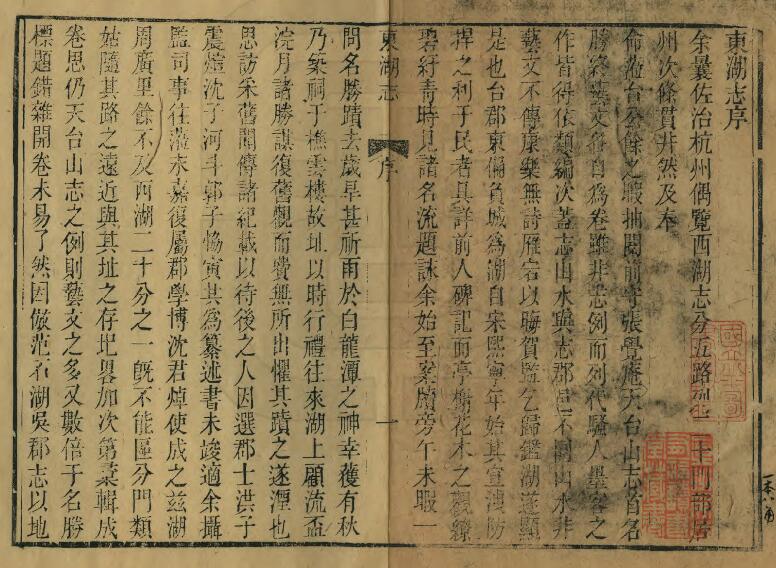 東湖志序
余曩佐治杭州偶覽西湖志分五路列三十門部居
州次條貫井然及奉
命涖台公餘之暇抽閱前守張覺庵天台山志首名
勝終藝文各自為卷雖非志例而列代騷人墨客之
作皆得依類編次蓋志山水與志郡邑不同山水非
藝文不傳康樂無詩雁宕以晦賀監乞歸鑑湖遂顯
是也台郡東偏負城為湖自宋熙寧年始其宣洩防
捍之利于民者具詳前人碑記而亭榭花木之觀繚
碧紆青時見諸名流題詠余始至案牘旁午未暇一
東湖志 序 一
問名勝蹟去歲旱甚祈雨於白龍潭之神幸獲有秋
乃築祠于樵雲樓故址以時行禮往來湖上顧流盃
浣月諸勝謀復舊觀而費無所出懼其蹟之遂湮也
思訪采舊聞傳諸紀載以待後之人因選郡士洪子
震煊沈子河斗郭子協寅其為纂述書未竣適余攝
監司事往涖永嘉復屬郡學博沈君焯使成之茲湖
周廣里餘不及西湖二十分之一既不能區分門類
姑隨其路之遠近與其址之存圮畧加次第彚輯成
卷思仍天台山志之例則藝文之多又數倍于名勝
標題錯雜開卷未易了然因倣范石湖吳郡志以地